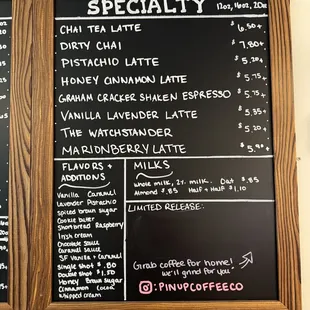 SPECIALTY 12oz, 16oz, 20oz
CHAI TEA LATTE $6.50+
DIRTY CHAI $7.80+
PISTACHIO LATTE $5.20+
HONEY CINNAMON LATTE $5.75+
GRAHAM CRACKER SHAKEN ESPRESSO $5.75+
VANILLA LAVENDER LATTE $5.35+
THE WATCHSTANDER $5.20+
MARIONBERRY LATTE $5.90+
FLAVORS +
ADDITIONS
Vanilla Caramel
Lavender Pistachio
Spiced brown sugar
Cookie butter
Shortbread Raspberry
Irish cream
Chocolate sauce
Caramel sauce
SF Vanilla + Caramel
Single shot $.80
Double shot $1.50
Honey Brown Sugar
Cinnamon Cocoa
Whipped cream
MILKS
Whole milk, 2% milk. Oat $.85
Almond $.85 Half + Half $1.10
LIMITED RELEASE:
Grab coffee for home!
We'll grind for you
: PINUPCOFFEECO